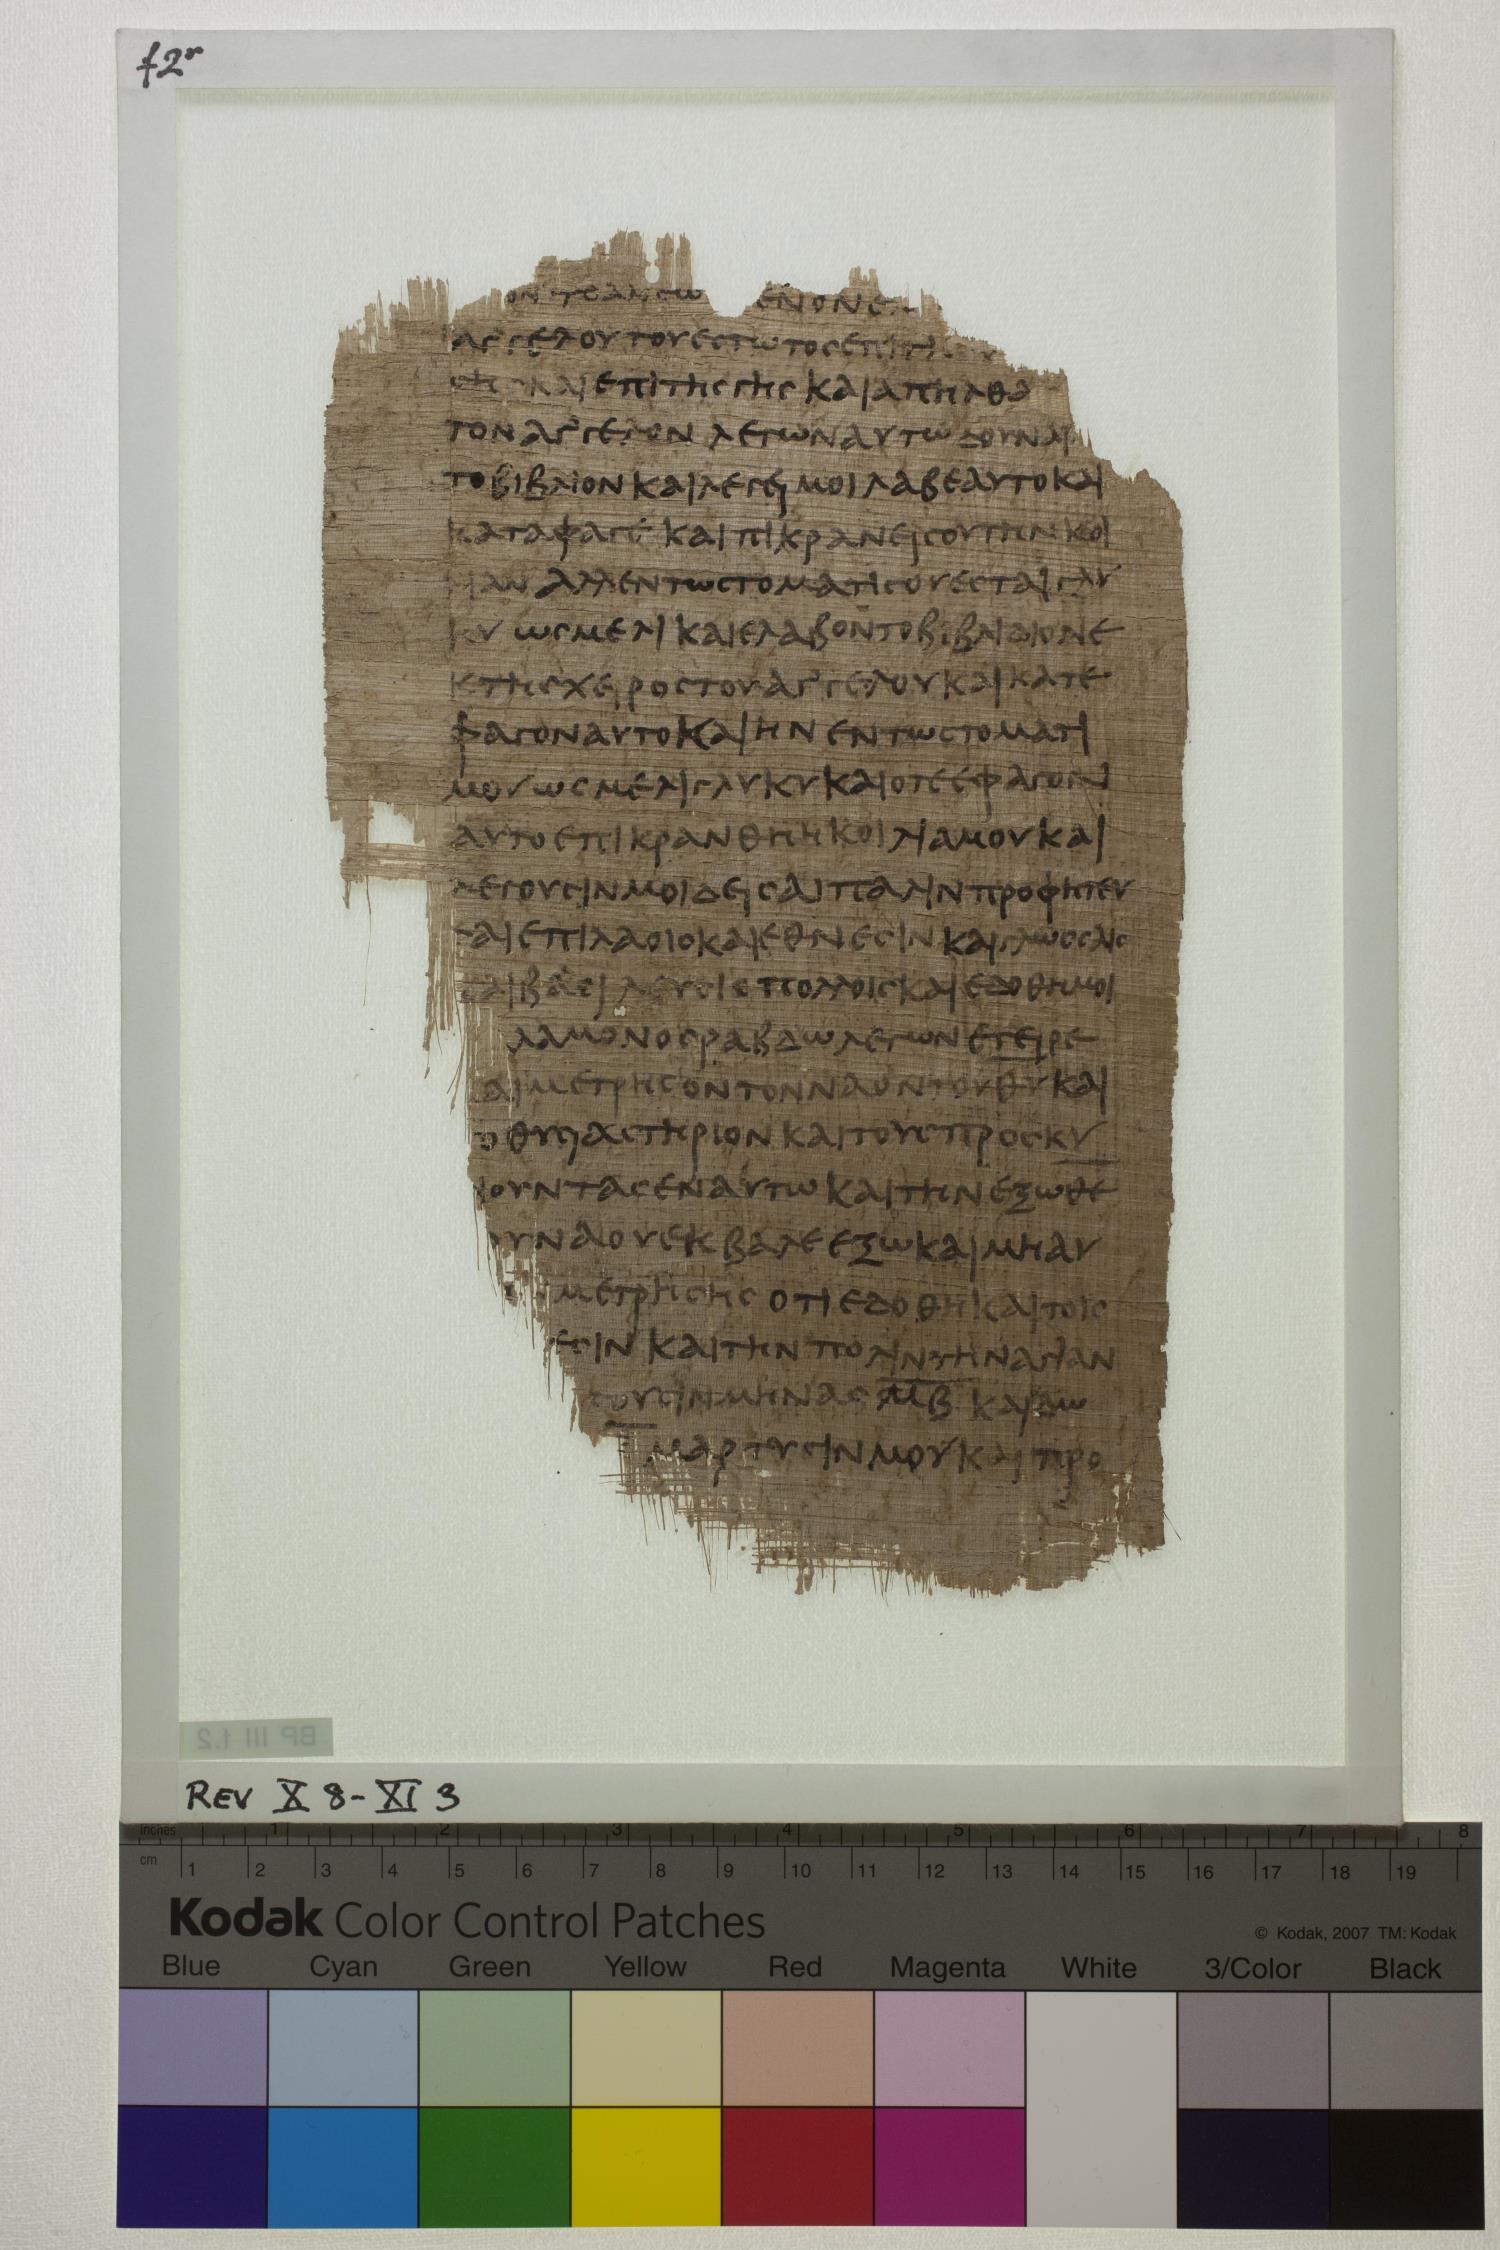 f2r
αγγελου του εστωτος επι της
και επι της γης και απηλθα
τον αγ'γελον λεγων αυτω δουναι
το βιβλιον και λεγει μοι λαβε αυτο και
καταφαγε και πικρανει σου την κοι
αν αλλ εν τω στοματι σου εσται γλυ
κυ ως μελι και ελαβον το βιβλιδιον ε
κ της χειρος του αγ'γελου και κατε
φαγον αυτο και ην εν τω στοματι
μου ως μελι γλυκυ και οτε εφαγον
αυτο επικρανθη η κοιλια μου και
λεγουσιν μοι δει σαι παλιν προφητευ
σαι επι λαοις και εθνεσιν και γλωσσαις
και βασιλευσις πολλοις και εδοθη μοι
λαμονος ραβδω λεγων εγειρε
και μετρησον τον ναον του θυ και
το θυσιαστηριον και τους προσκυ
νουντας εν αυτω και την εξωθε
ναου εκβαλε εξω και μη αυ
μετρησης οτι εδοθη και τοις
εσιν και την πολιν την αγιαν
σουσιν μηνας μβ και δω
μαρτυσιν μου και προ
BP III 1.2
REV X 8 - XI 3
inches 1 2 3 4 5 6 7 8
cm 1 2 3 4 5 6 7 8 9 10 11 12 13 14 15 16 17 18 19
Kodak Color Control Patches
© Kodak, 2007 TM: Kodak
Blue Cyan Green Yellow Red Magenta White 3/Color Black